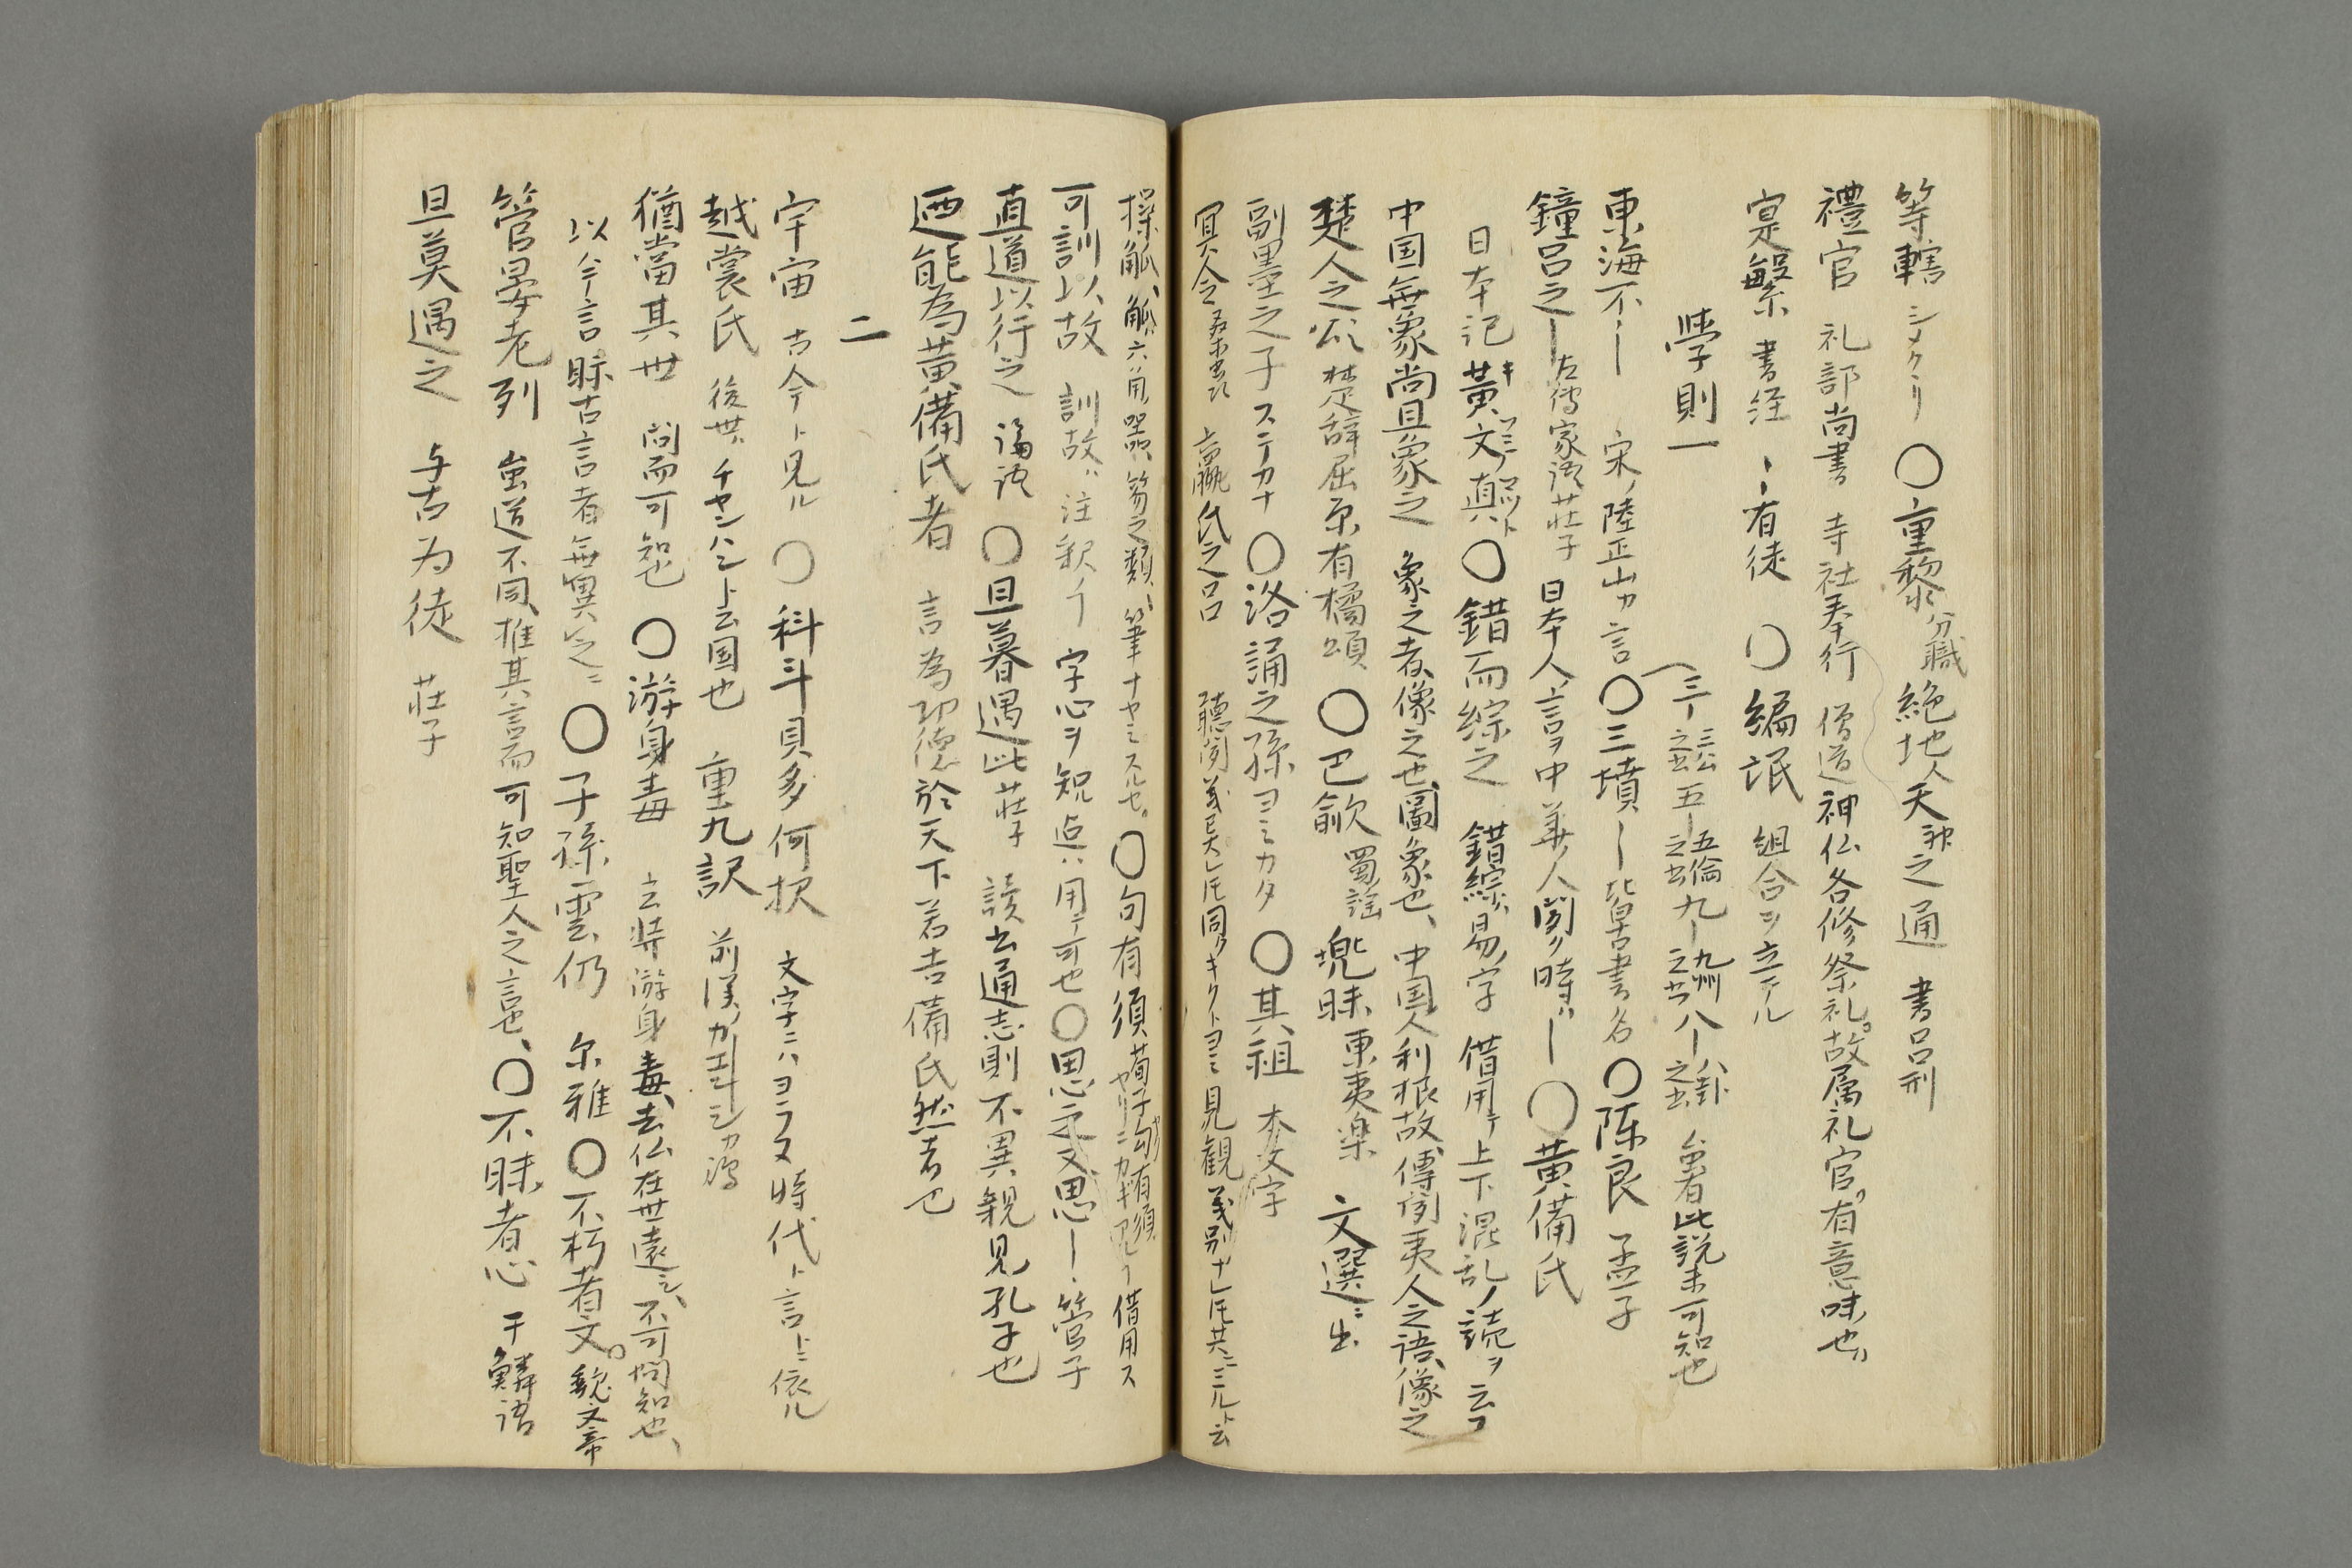 等轄 シメクヽリ 〇重黎分職絶地人天神之通 書呂刑
禮官 礼部尚書 寺社奉行 僧道神仏各修祭礼故属礼官有意味也
寔繁 書経 ーー有徒 〇編氓 組合ヲ立テル
學則一
三ー三公之 五ー五倫之 九ー九州之 八ー八卦之 者此説未可知也
東海不ー 宋ノ陸正山カ言 〇三墳ー 皆古書名 〇陳良 孟子
鐘呂之ー 左傳家語莊子 日本人ノ言ヲ中華ノ人聞ク時ハー 〇黄備氏
日本記 黄文キフミノ 真マツト 〇錯而綜之 錯綜ハ易ノ字 借用テ上下混乱ノ読ヲ云フ
中国無象尚且象之 象之者像之也圖象也、中国人利根故傳聞夷人之語像之
楚人之頌 楚辞屈原有橘頌 〇巴歈 蜀謡 兜昧 東夷楽 文選ニ出
副墨之子 ステカナ 〇洛誦之孫 ヨミカタ 〇其祖 本文字
冥令 桑虫 贏氏之呂 聽聞義異レ𪜈同クキクトヨミ見観義別ナレ𪜈共ニミルト云
操觚 觚六角器 筴之類 筆ナヤミスル也 〇句有須 荀子 句有須 借用ス
可訓以故 訓故ハ注釈ノ 字心ヲ知 迠ハ用テ可也 〇思之又思ー 管子
直道以行之 論語 〇旦暮遇此 莊子 讀書通志則不異親見孔子也
廼能為黄備氏者 言為功徳於天下若吉備氏然者也
二
宇宙 古今ト見ル 〇科斗貝多何択 文字ニハヨラヌ時代ト言トニ依ル
越裳氏 後世チヤンハント云国也 重九訳 前漢
猶當其世 問而可知也 〇游身毒 玄奘游身毒去仏在世遠シ不可問知也、
以今言眎古言者無異之ニ 〇子孫雲仍 尓雅 〇不朽者文 魏文帝
管晏老列 虽道不同推其言而可知聖人之言也、〇不昧者心 于鱗語
旦莫遇之 与古為徒 莊子